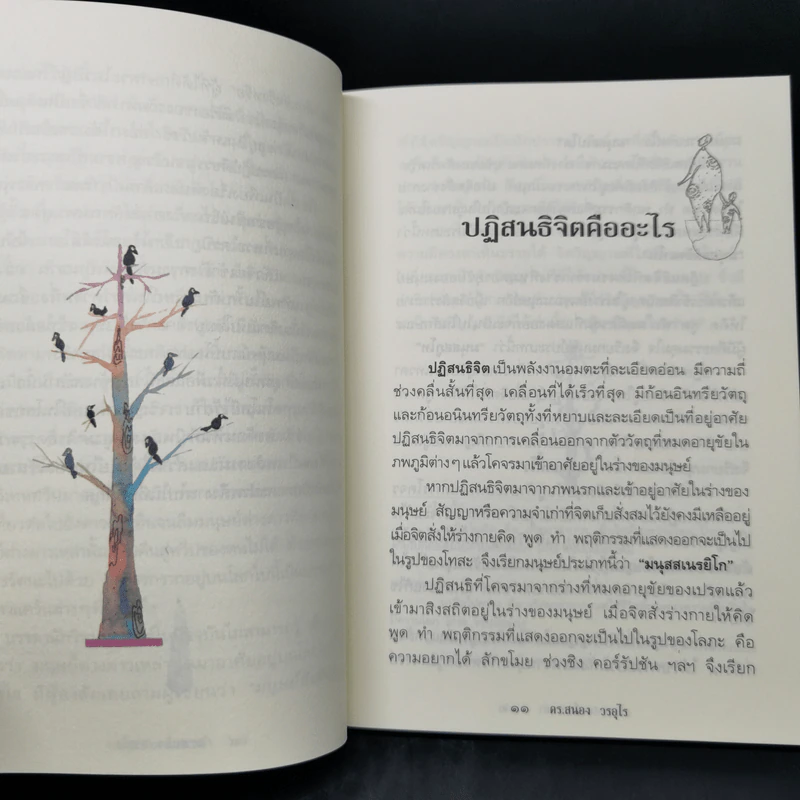 ปฏิสนธิจิตคืออะไร
ปฏิสนธิจิต เป็นพลังงานอมตะที่ละเอียดอ่อน มีความถี่
ช่วงคลื่นสั้นที่สุด เคลื่อนที่ได้เร็วที่สุด มีก้อนอินทรียวัตถุ
และก้อนอนินทรียวัตถุทั้งที่หยาบและละเอียดเป็นที่อยู่อาศัย
ปฏิสนธิจิตมาจากการเคลื่อนออกจากตัววัตถุที่หมดอายุขัยใน
ภพภูมิต่างๆ แล้วโคจรมาเข้าอาศัยอยู่ในร่างของมนุษย์
หากปฏิสนธิจิตมาจากภพนรกและเข้าอยู่อาศัยในร่างของ
มนุษย์ สัญญาหรือความจำเก่าที่จิตเก็บสั่งสมไว้ยังคงมีเหลืออยู่
เมื่อจิตสั่งให้ร่างกายคิด พูด ทำ พฤติกรรมที่แสดงออกจะเป็นไป
ในรูปของโทสะ จึงเรียกมนุษย์ประเภทนี้ว่า “มนุสสเนรยิโก”
ปฏิสนธิที่โคจรมาจากร่างที่หมดอายุขัยของเปรตแล้ว
เข้ามาสิงสถิตอยู่ในร่างของมนุษย์ เมื่อจิตสั่งร่างกายให้คิด
พูด ทำ พฤติกรรมที่แสดงออกจะเป็นไปในรูปของโลภะ คือ
ความอยากได้ ลักขโมย ช่วงชิง คอร์รัปชัน ฯลฯ จึงเรียก
๑๑ ดร.สนอง วรอุไร